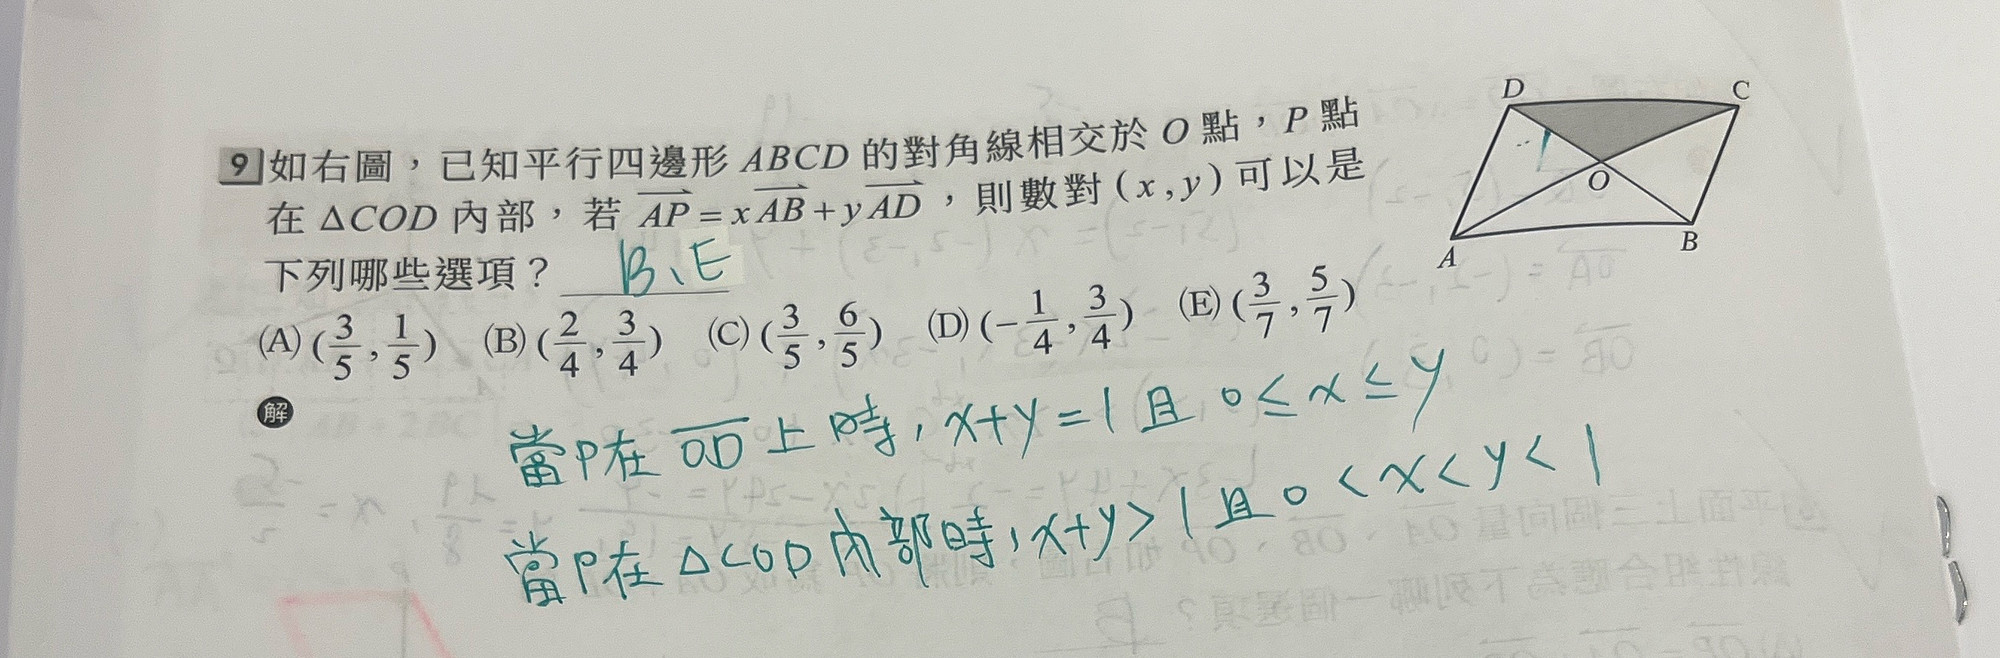 D
C
9 如右圖，已知平行四邊形 ABCD 的對角線相交於 O 點，P 點
O
在 △COD 內部，若 AP = xAB + yAD，則數對 (x, y) 可以是
A
B
下列哪些選項？ B、E
(A) (3/5, 1/5) (B) (2/4, 3/4) (C) (3/5, 6/5) (D) (-1/4, 3/4) (E) (3/7, 5/7)
解
當P在 OD 上時, x+y=1 且 0≤x≤y
當P在 △COD 內部時, x+y>1 且 0<x<y<1